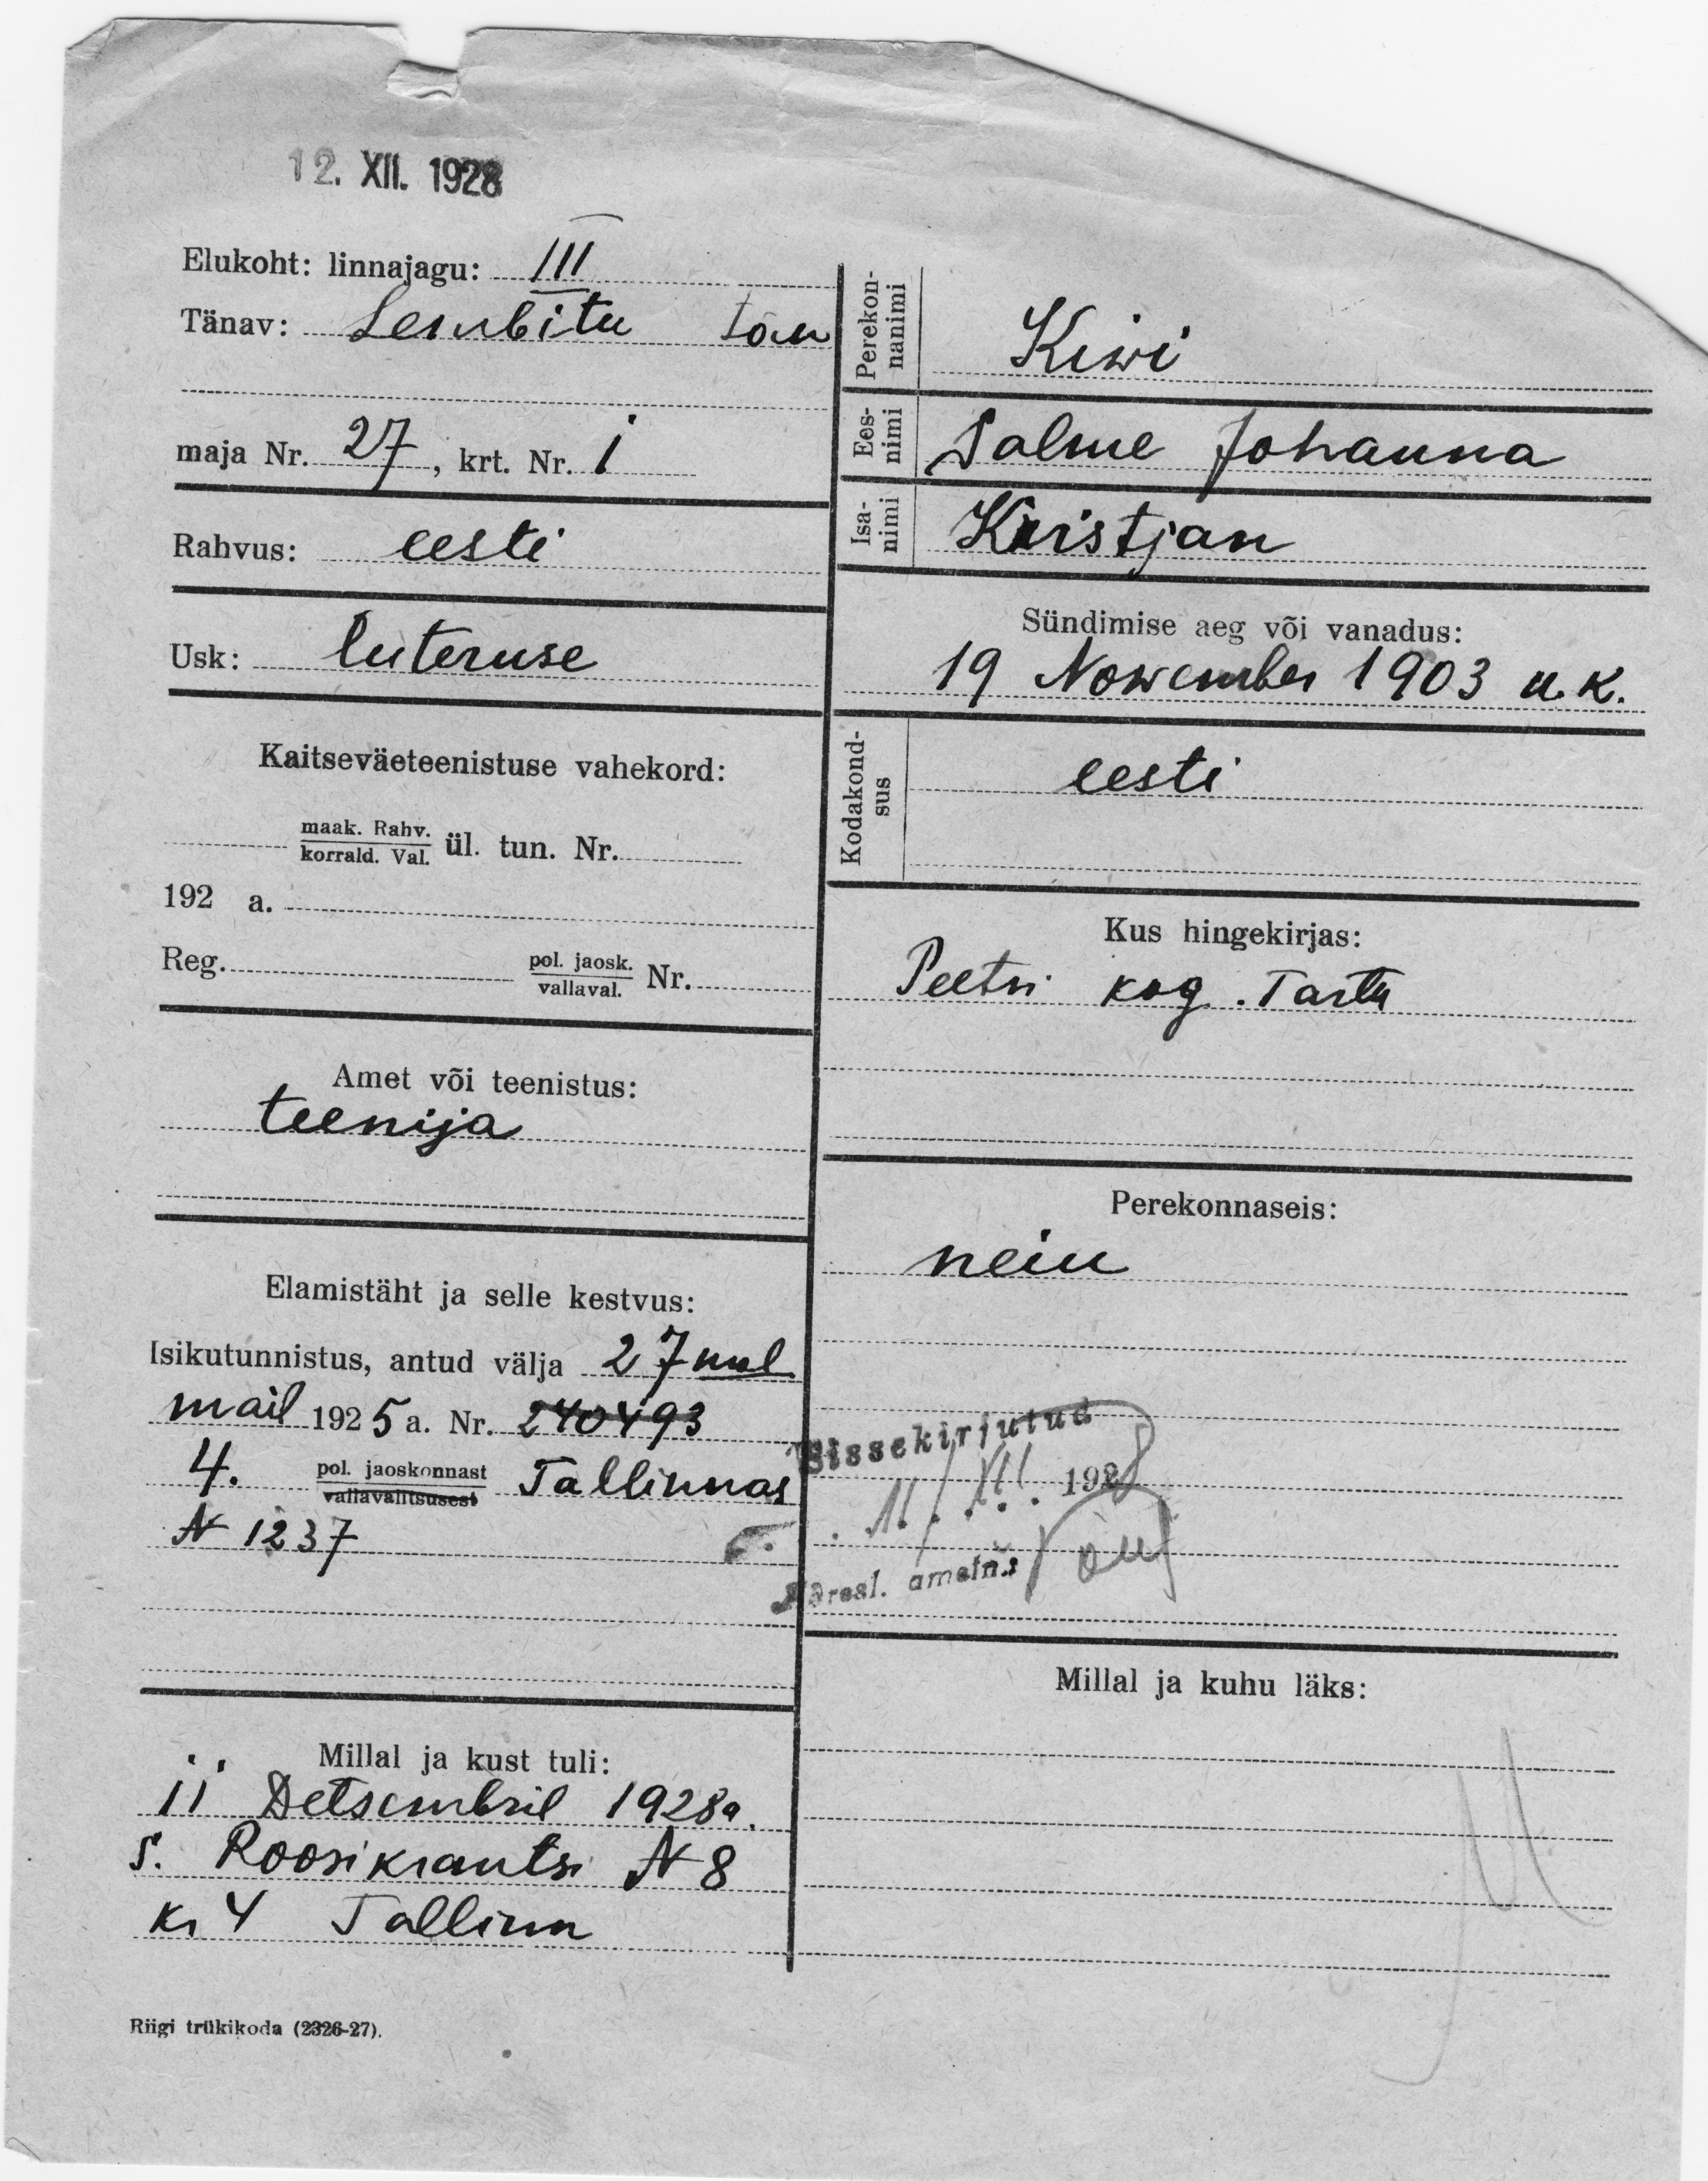 12. XII. 1928
Elukoht: linnajagu: III
Tänav: Lembitu tän
maja Nr. 27, krt. Nr. 1
Rahvus: eesti
Usk: luteruse
Kaitseväeteenistuse vahekord:
maak. Rahv.
korrald. Val. ül. tun. Nr.
192 a.
Reg. pol. jaosk.
vallaval. Nr.
Amet või teenistus:
teenija
Elamistäht ja selle kestvus:
Isikutunnistus, antud välja 27 mal
mail 1925 a. Nr. 240493
4. pol. jaoskonnast Tallinnas
vallavalitsusest
N 1237
Millal ja kust tuli:
11 Detsembril 1928 a.
s. Roosikrantsi N 8
kr 4 Tallinn
Riigi trükikoda (2326-27).
Perekon-
nanimi Kiwi
Ees-
nimi Salme Johanna
Isa-
nimi Kristjan
Sündimise aeg või vanadus:
19 Nowember 1903 u. k.
Kodakond-
sus eesti
Kus hingekirjas:
Peetri kog. Tartu
Perekonnaseis:
neiu
Sissekirjutud
11/XII. 1928
Adresl. ametn.:
Millal ja kuhu läks: